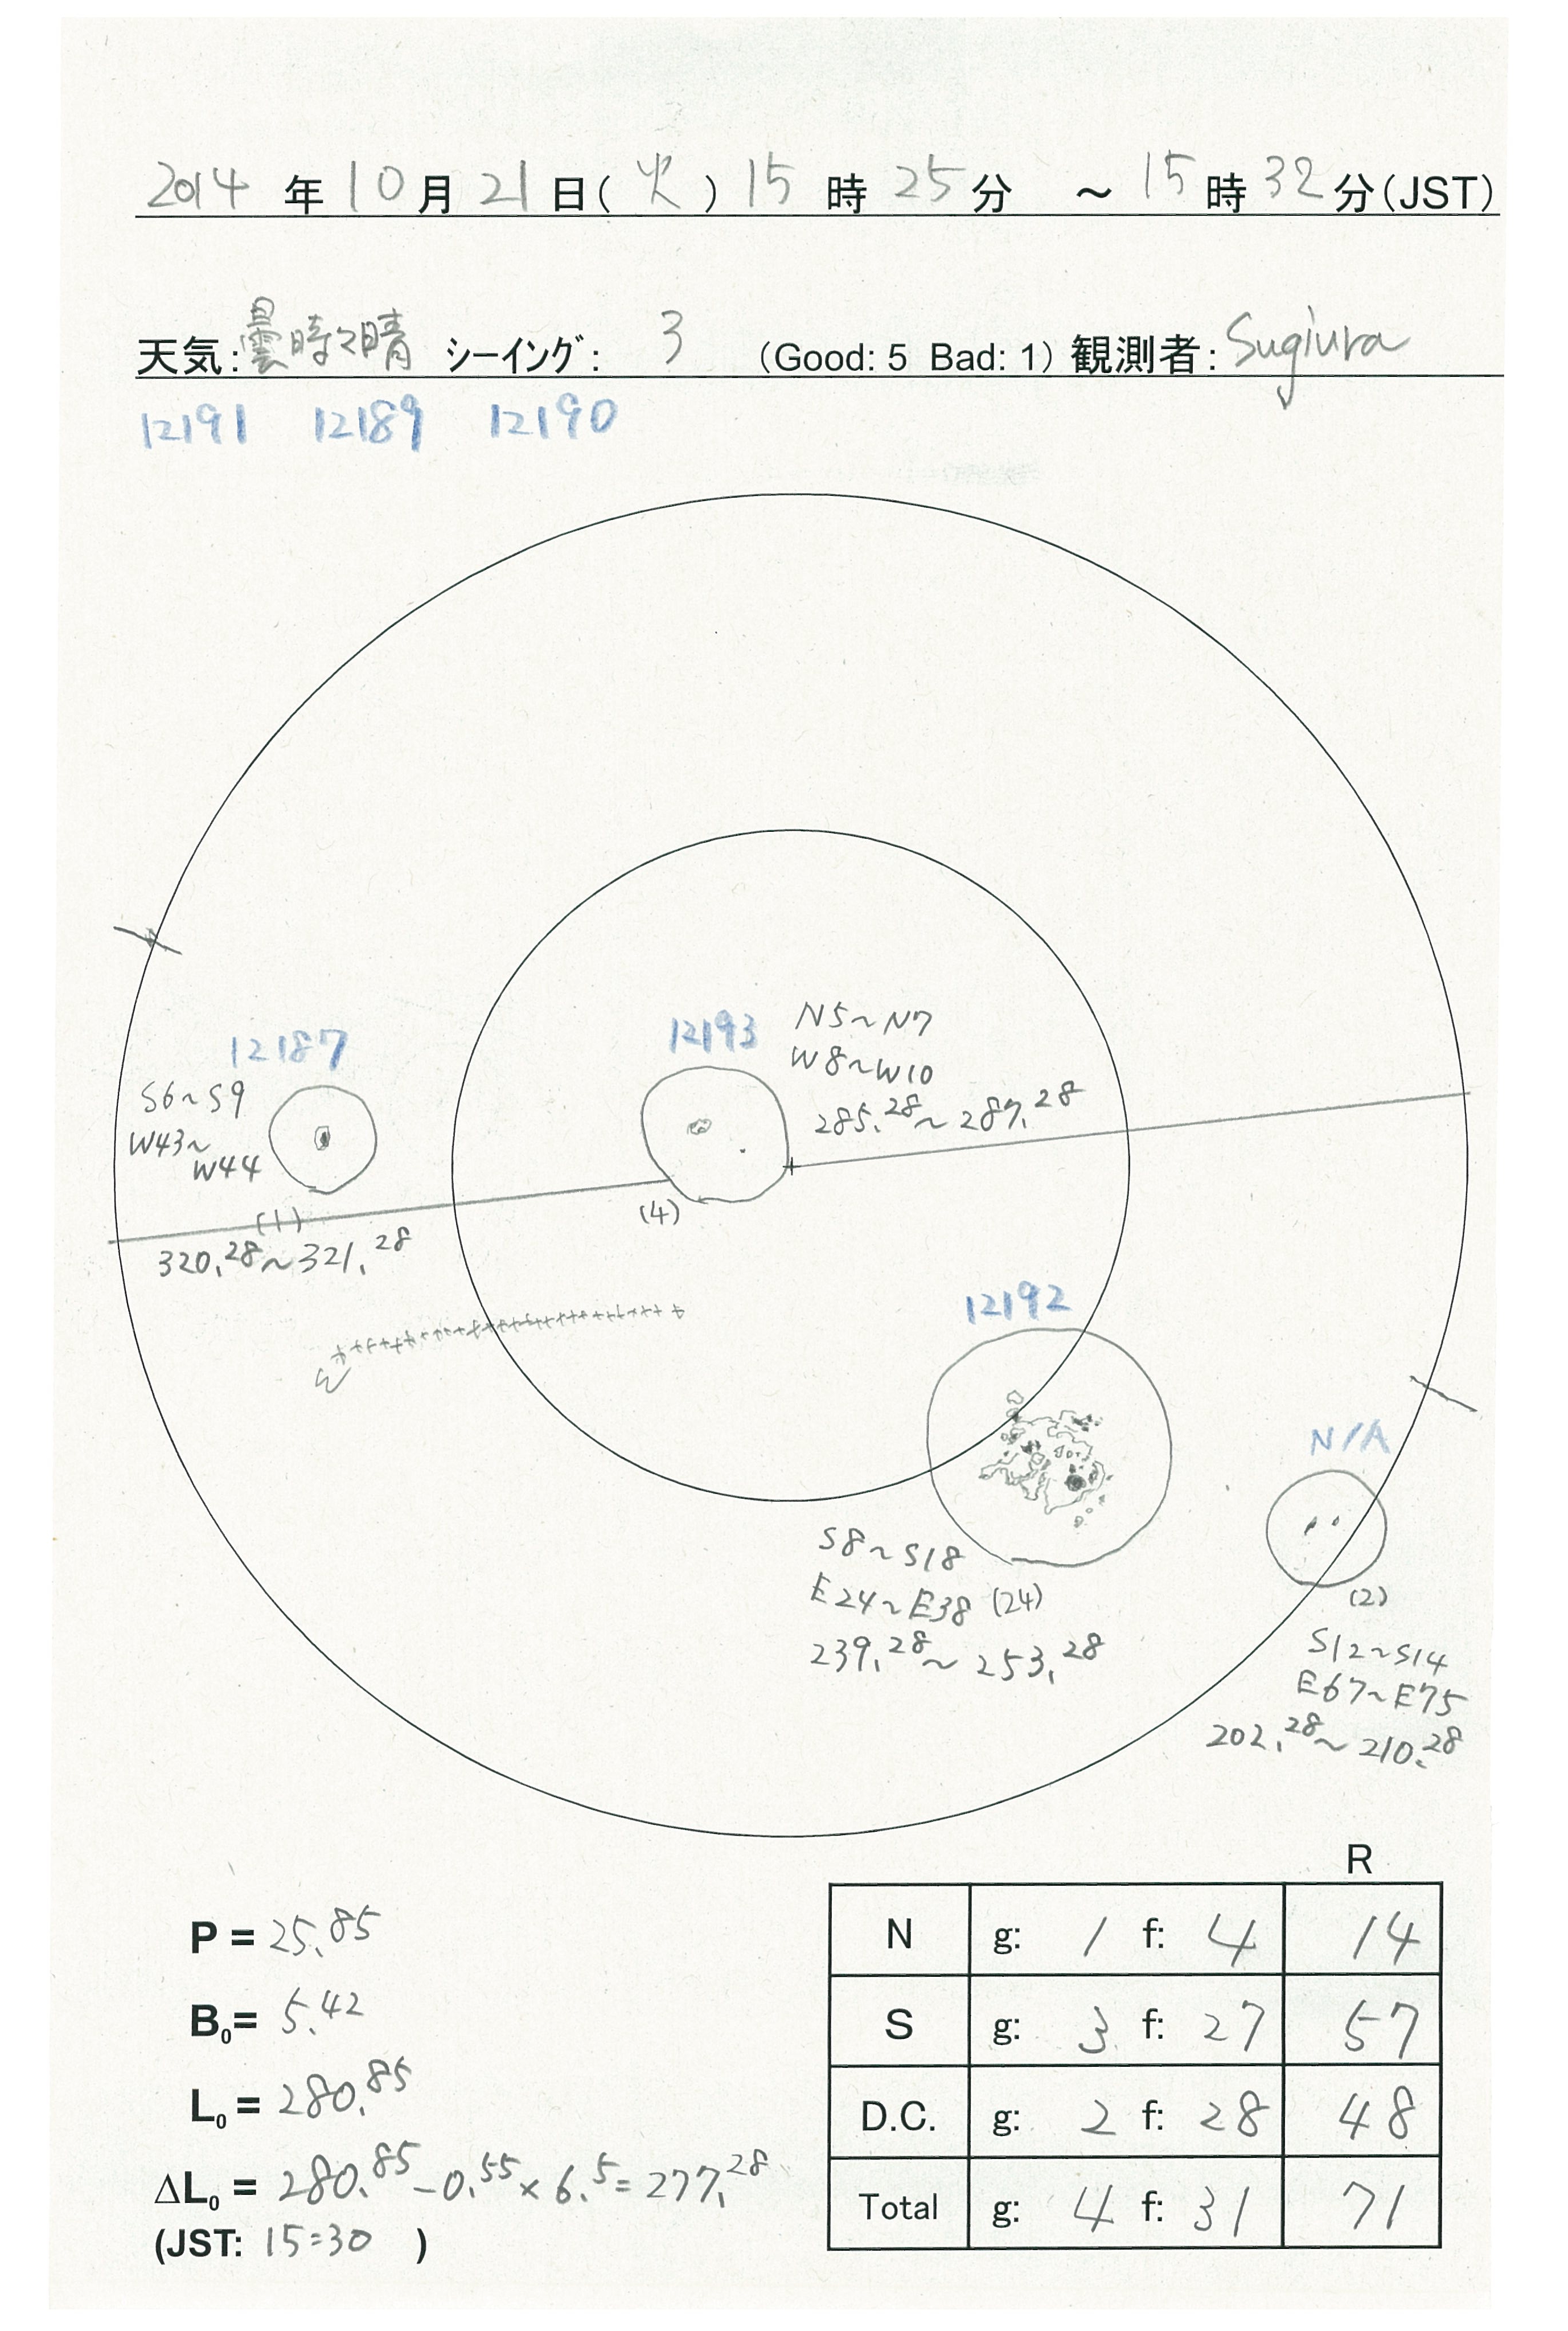 2014 年 10 月 21 日(火) 15 時 25 分 ～ 15 時 32 分(JST)
天気: 曇時々晴 シーイング: 3 (Good: 5 Bad: 1) 観測者: Sugiura
12191 12189 12190
12187
S6~S9
W43~
W44
(1)
320.28~321.28
12193
N5~N7
W8~W10
285.28~287.28
(4)
12192
S8~S18
E24~E38 (24)
239.28~253.28
N/A
(2)
S12~S14
E67~E75
202.28~210.28
P = 25.85
B0= 5.42
L0 = 280.85
ΔL0 = 280.85-0.55×6.5=277.28
(JST: 15:30 )
R
N g: 1 f: 4 14
S g: 3 f: 27 57
D.C. g: 2 f: 28 48
Total g: 4 f: 31 71